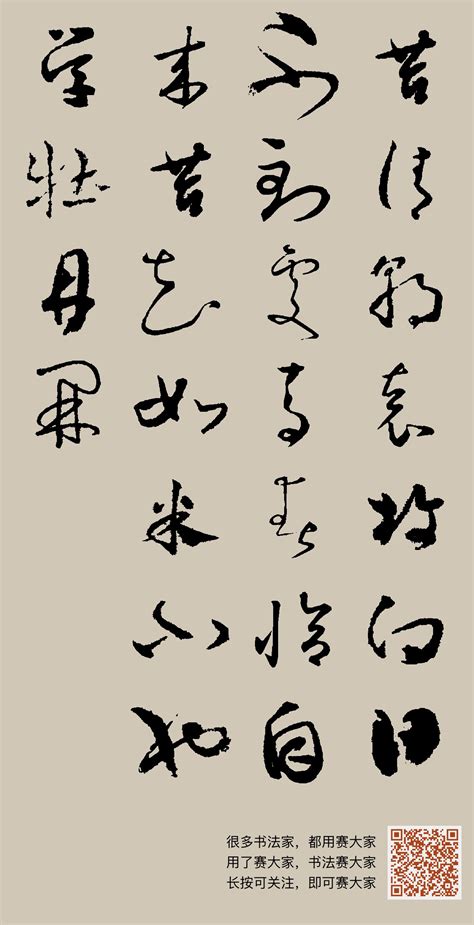 苔清朝袁枚白日
不到處青春恰自
来苔花如米小也
学牡丹開
很多书法家，都用赛大家
用了赛大家，书法赛大家
长按可关注，即可赛大家